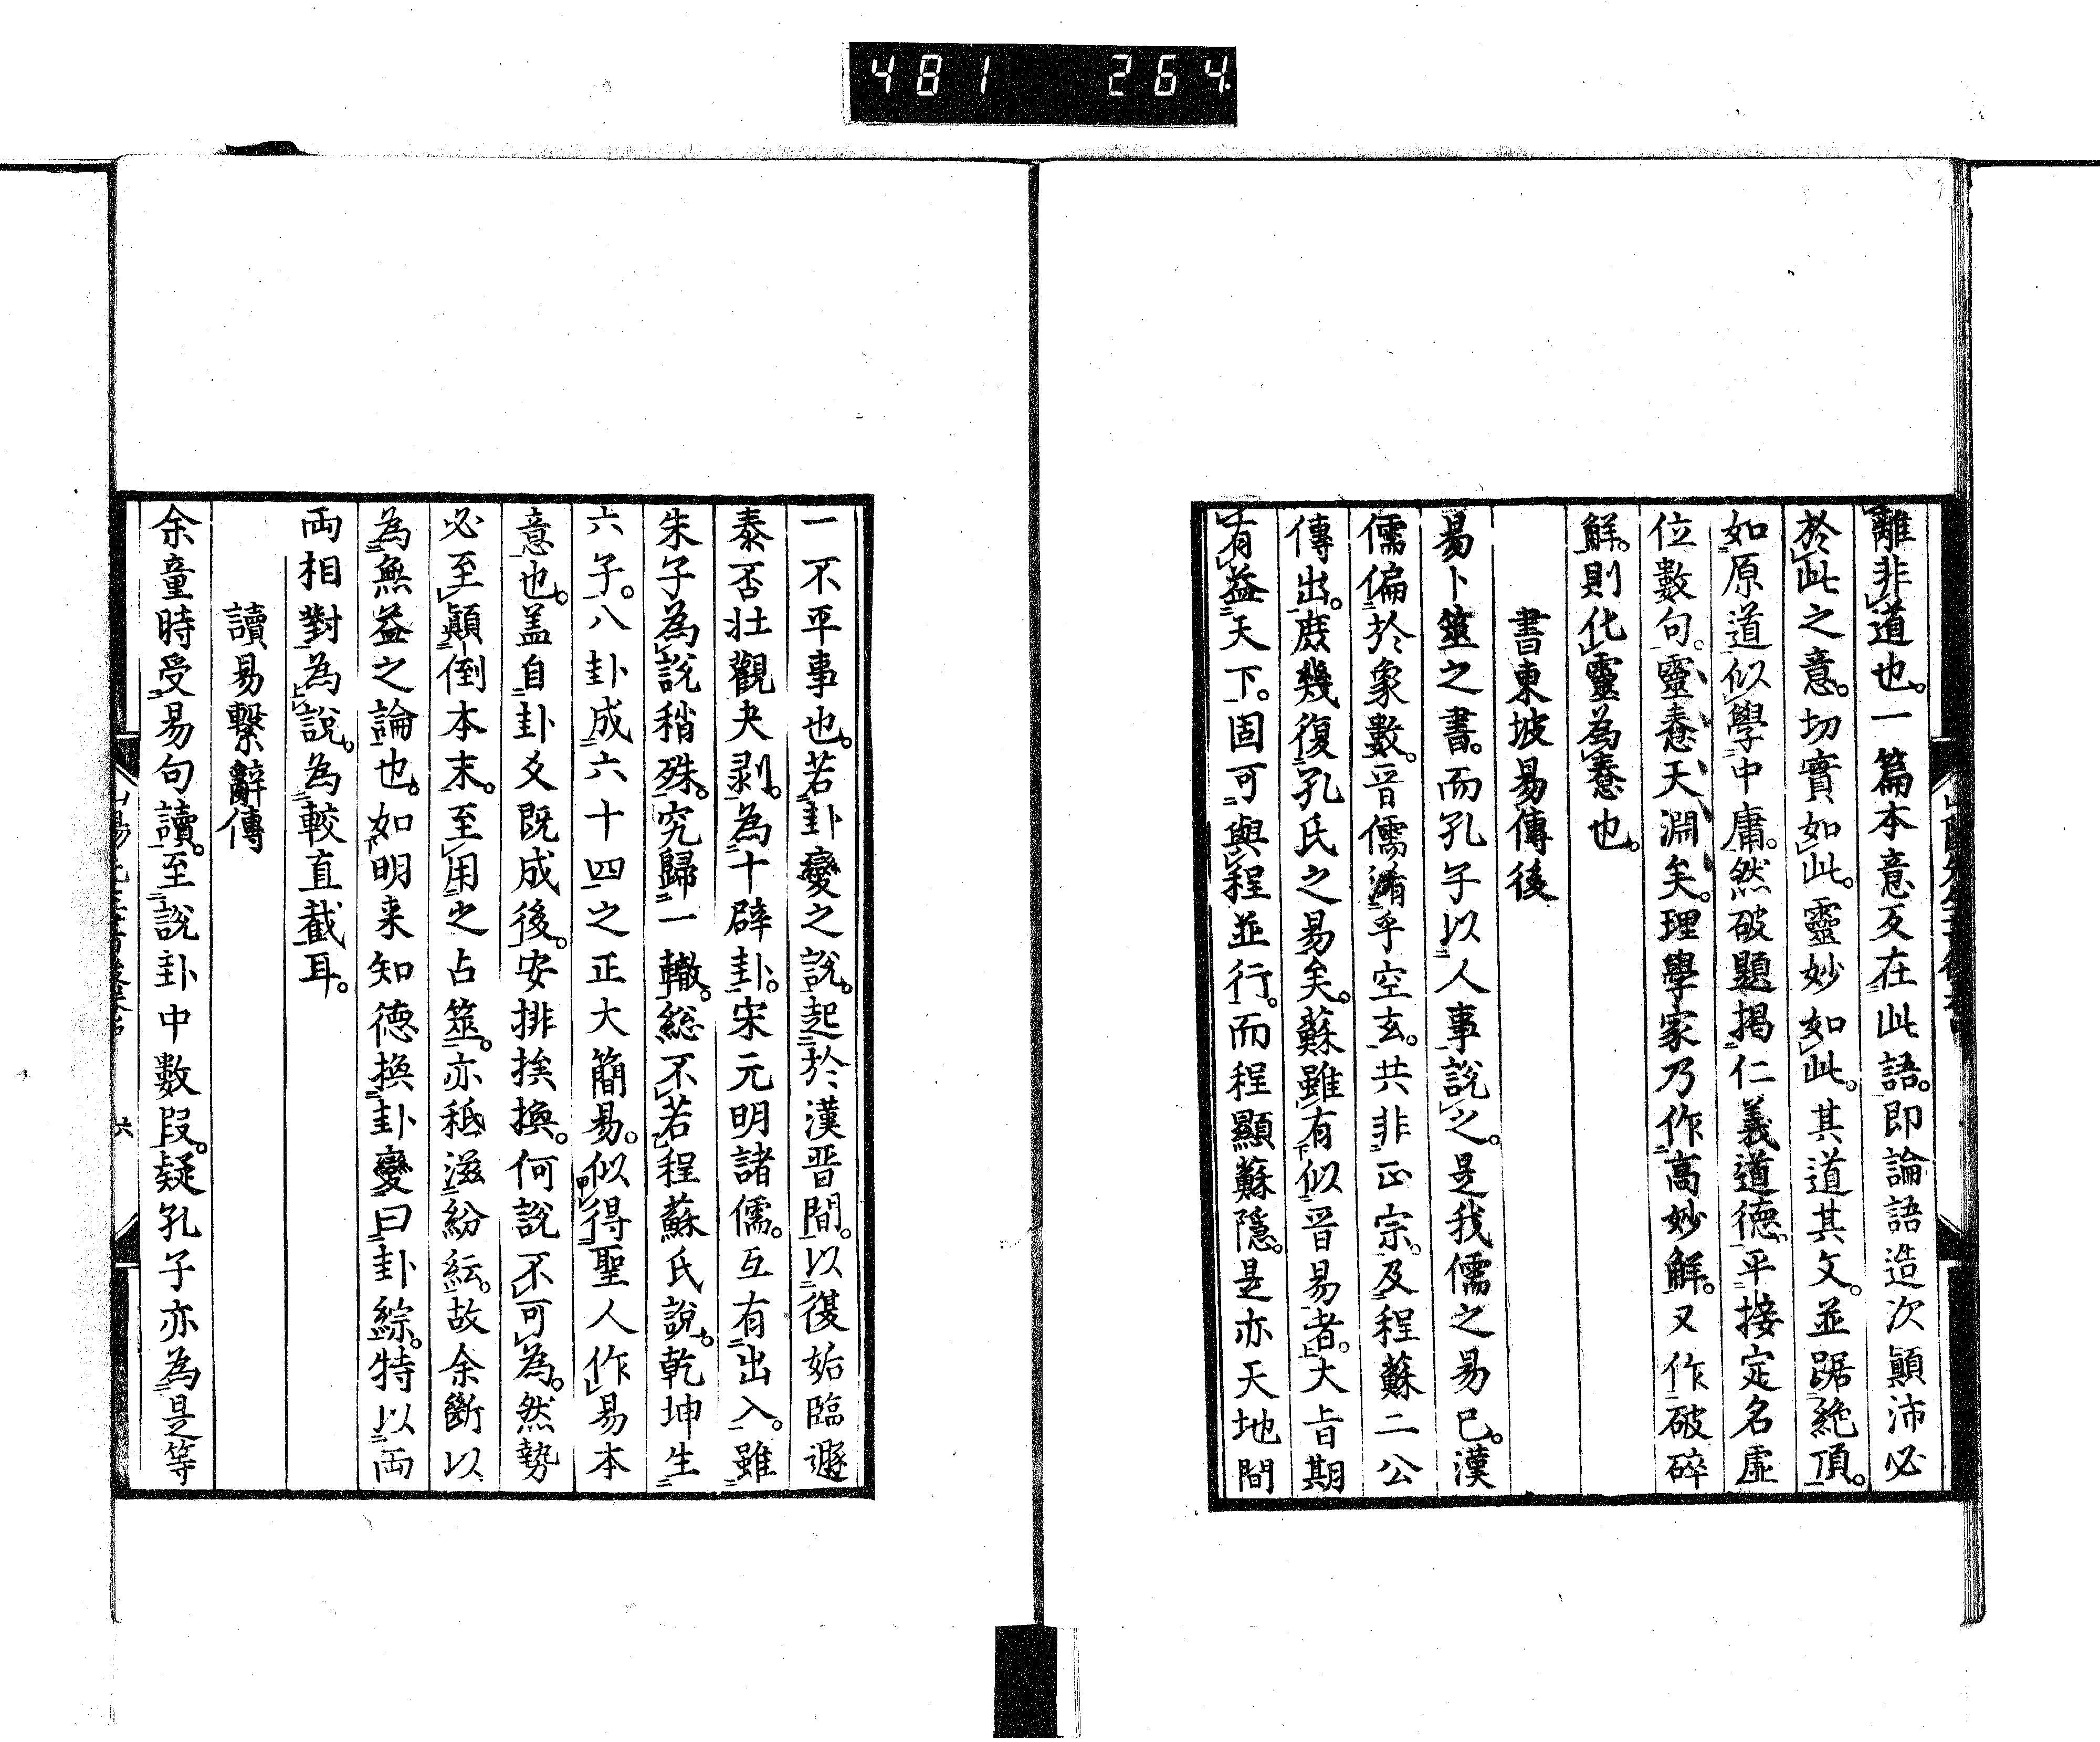 481 264
離非道也。一篇本意反在此語。即論語造次顛沛必
於此之意。切實如此。靈妙如此。其道其文。並踞絶頂。
如原道似學中庸。然破題揭仁義道德。平接定名虛
位數句。靈惷天淵矣。理學家乃作高妙解。又作破碎
解。則化靈為惷也。
書東坡易傳後
易卜筮之書。而孔子以人事說之。是我儒之易已。漢
儒偏於象數。晋儒淆乎空玄。共非正宗。及程蘇二公
傳出。庶幾復孔氏之易矣。蘇雖有似晋易者。大旨期
有益天下。固可與程並行。而程顯蘇隱。是亦天地間
一不平事也。若卦變之說。起於漢晋間。以復姤臨遯
泰否壯觀夬剥。為十辟卦。宋元明諸儒。互有出入。雖
朱子為說稍殊。究歸一轍。総不若程蘇氏說。乾坤生
六子。八卦成六十四之正大簡易。似得聖人作易本
意也。盖自卦爻既成後。安排挨換。何說不可為。然勢
必至顛倒本末。至用之占筮。亦秪滋紛紜。故余斷以
為無益之論也。如明来知德換卦變曰卦綜。特以両
両相對為說。為較直截耳。
讀易繫辭傳
余童時受易句讀。至說卦中數段。疑孔子亦為是等
六